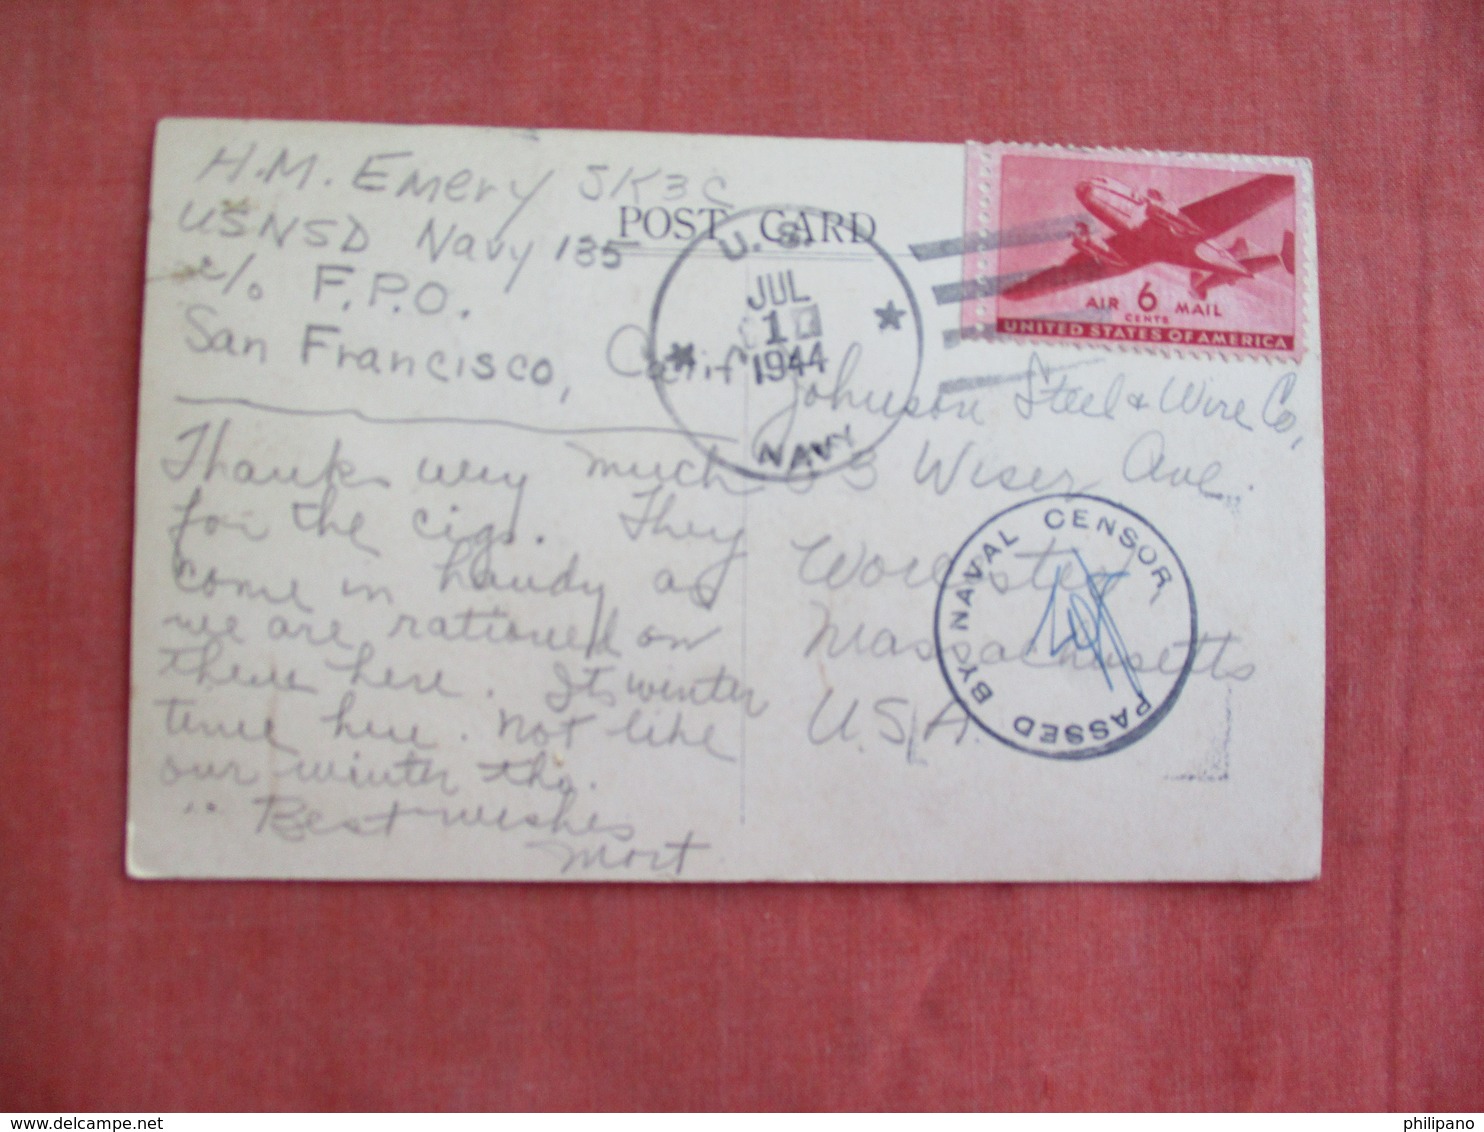 H.M. Emery SK3C
USNSD Navy 135
c/o F.P.O.
San Francisco, Calif
POST CARD
U.S.
JUL
1
1944
NAVY
AIR 6 MAIL
CENTS
UNITED STATES OF AMERICA
Thanks very much
for the cigs. They
come in handy as
we are rationed on
them here. Its winter
time here. Not like
our winter tho.
Best wishes
Mort
Johnson Steel & Wire Co,
53 Wiser Ave.
Worcester
Massachusetts
U.S.A.
PASSED BY NAVAL CENSOR
delcampe.net
philipano